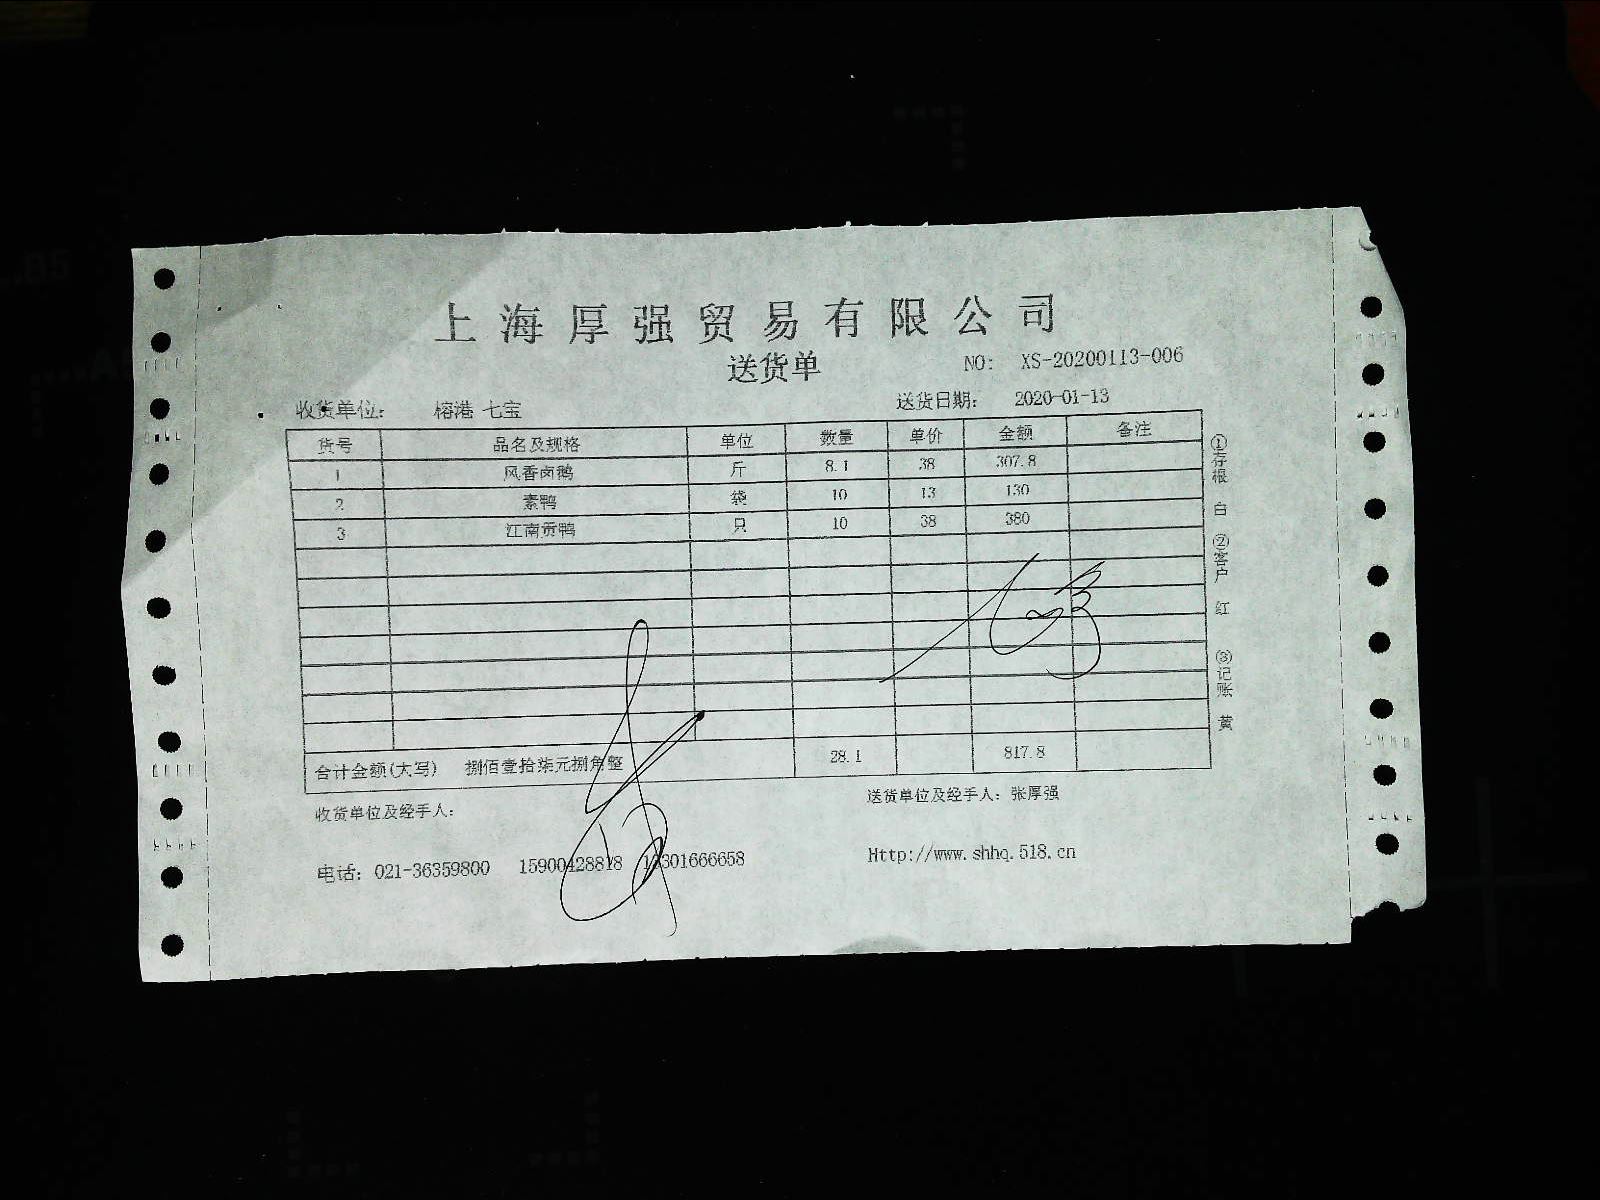 上海厚强贸易有限公司
送货单 NO: XS-20200113-006
收货单位: 榕港 七宝 送货日期: 2020-01-13
货号 品名及规格 单位 数量 单价 金额 备注
1 风香卤鹅 斤 8.1 38 307.8
2 素鸭 袋 10 13 130
3 江南贡鸭 只 10 38 380
合计金额(大写) 捌佰壹拾柒元捌角整 28.1 817.8
收货单位及经手人: 送货单位及经手人: 张厚强
电话: 021-36359800 15900428818 13301666658 Http://www.shhq.518.cn
①存根 白 ②客户 红 ③记账 黄